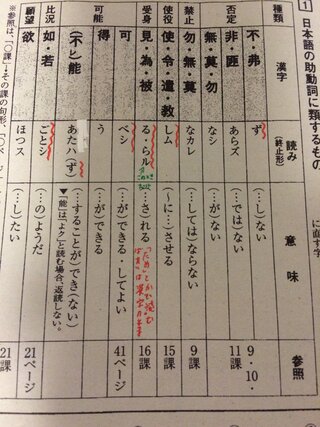 に直す字
1 日本語の助動詞に類するもの
種類 漢字 読み(終止形) 意味 参照
否定 不・弗 ず (…し)ない 9・10・
非・匪 あらズ (…では)ない 11課
無・莫・勿 なシ (…が)ない
禁止 勿・無・莫 なカレ (…しては)ならない 9課
使役 使・令・遣・教 しム (…に)させる 15課
受身 見・為・被 る・らル …される 16課
可能 可 ベシ (…が)できる・してよい 41ページ
得 う (…が)できる
(不)能 あたハ(ず) (…することが)でき(ない)
▼「能」は「よク」と読む場合、返読しない。
比況 如・若 ごとシ (…の)ようだ 21ページ
願望 欲 ほつス (…し)たい 21課
※参照は、「○課」→その課の句形、「○ペー